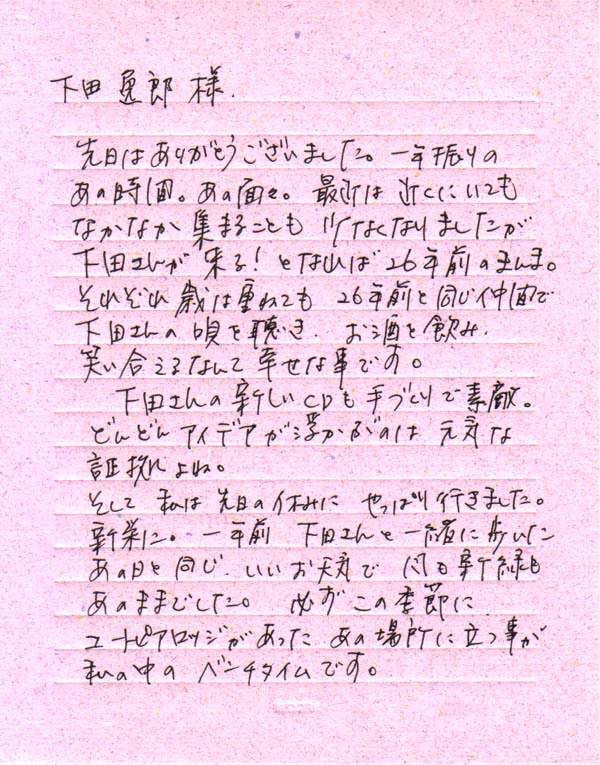 下田逸郎様.
先日はありがとうございました。一年振りの
あの時間。あの面々。最近は近くにいても
なかなか集まることも少なくなりましたが
下田さんが来る！となれば26年前のまんま。
それぞれ歳は重ねても26年前と同じ仲間で
下田さんの唄を聴き．お酒を飲み．
笑い合えるなんて幸せな事です。
下田さんの新しいCDも手づくりで素敵。
どんどんアイデアが浮かぶのは元気な
証拠だよね。
そして私は先日の休みにやっぱり行きました。
新栄に。一年前下田さんと一緒に歩いた
あの日と同じいいお天気で 風も新緑も
あのままでした。必ずこの季節に
ユートピアロッジがあったあの場所に立つ事が
私の中のベンチタイムです。